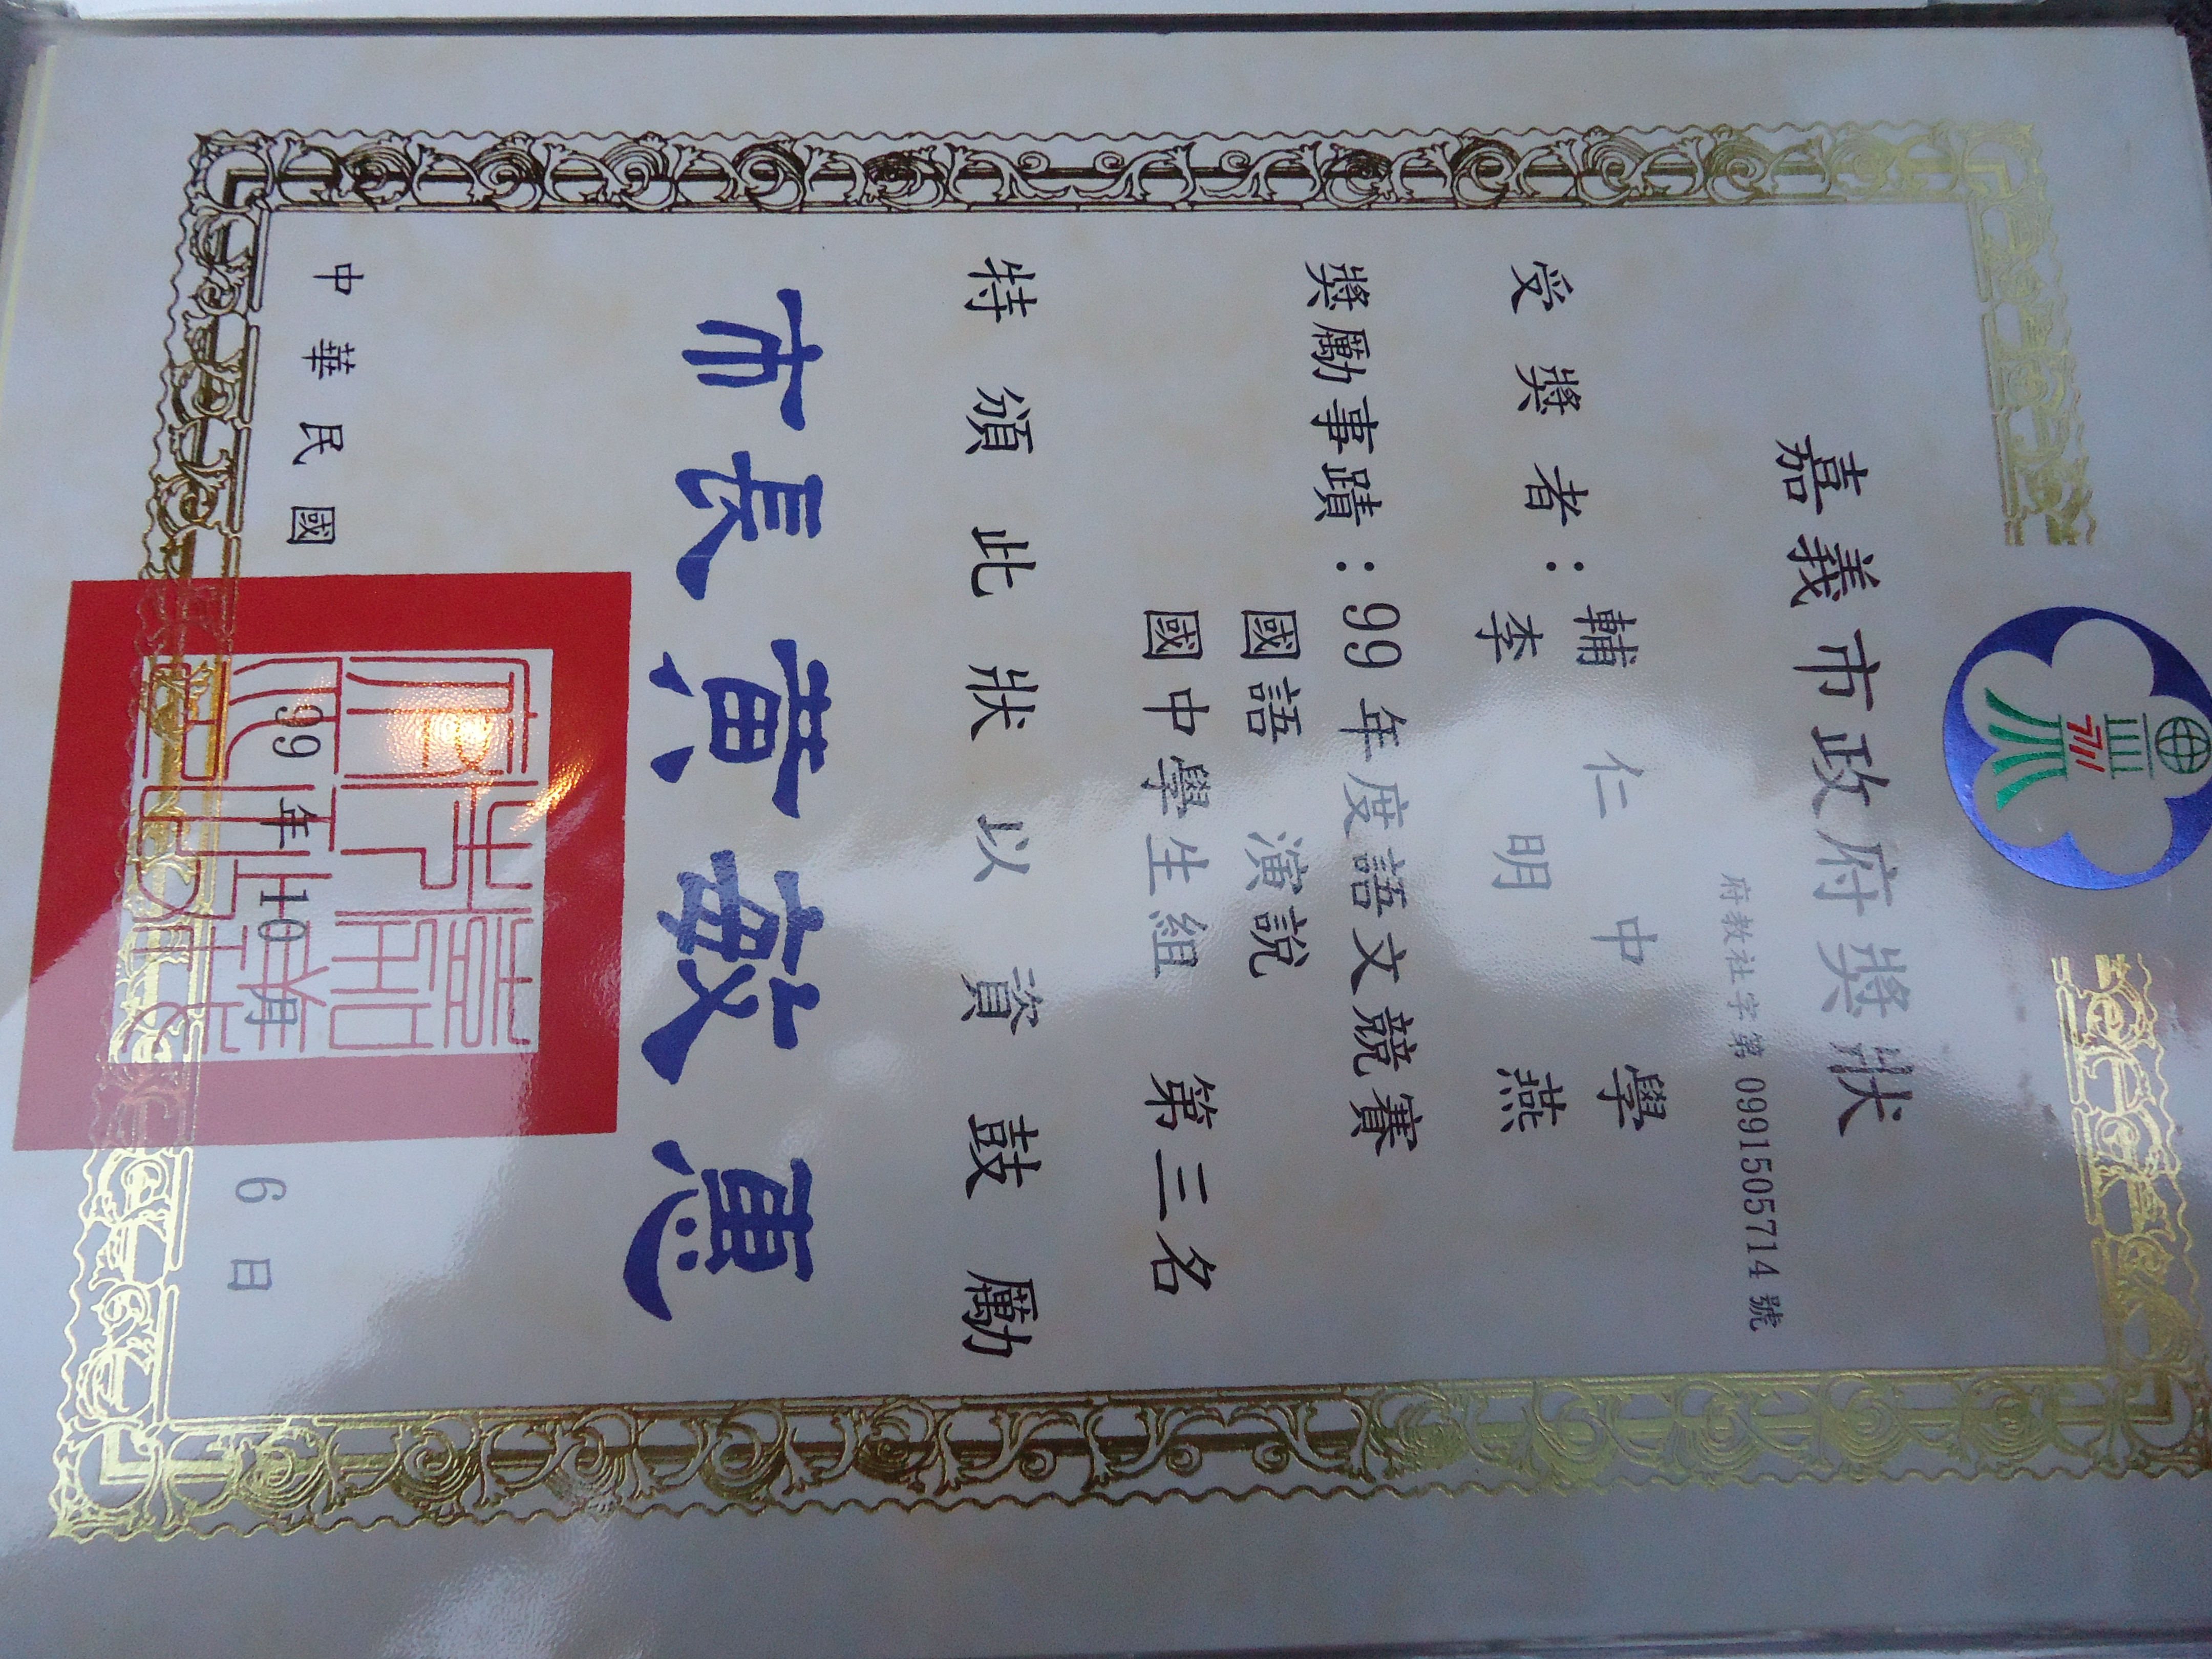 嘉義市政府獎狀
府教社字第 0991505714 號
受獎者：輔仁中學
李明燕
獎勵事蹟：99 年度語文競賽
國語 演說
國中學生組 第三名
特頒此狀以資鼓勵
市長黃敏惠
中華民國 99 年 10 月 6 日